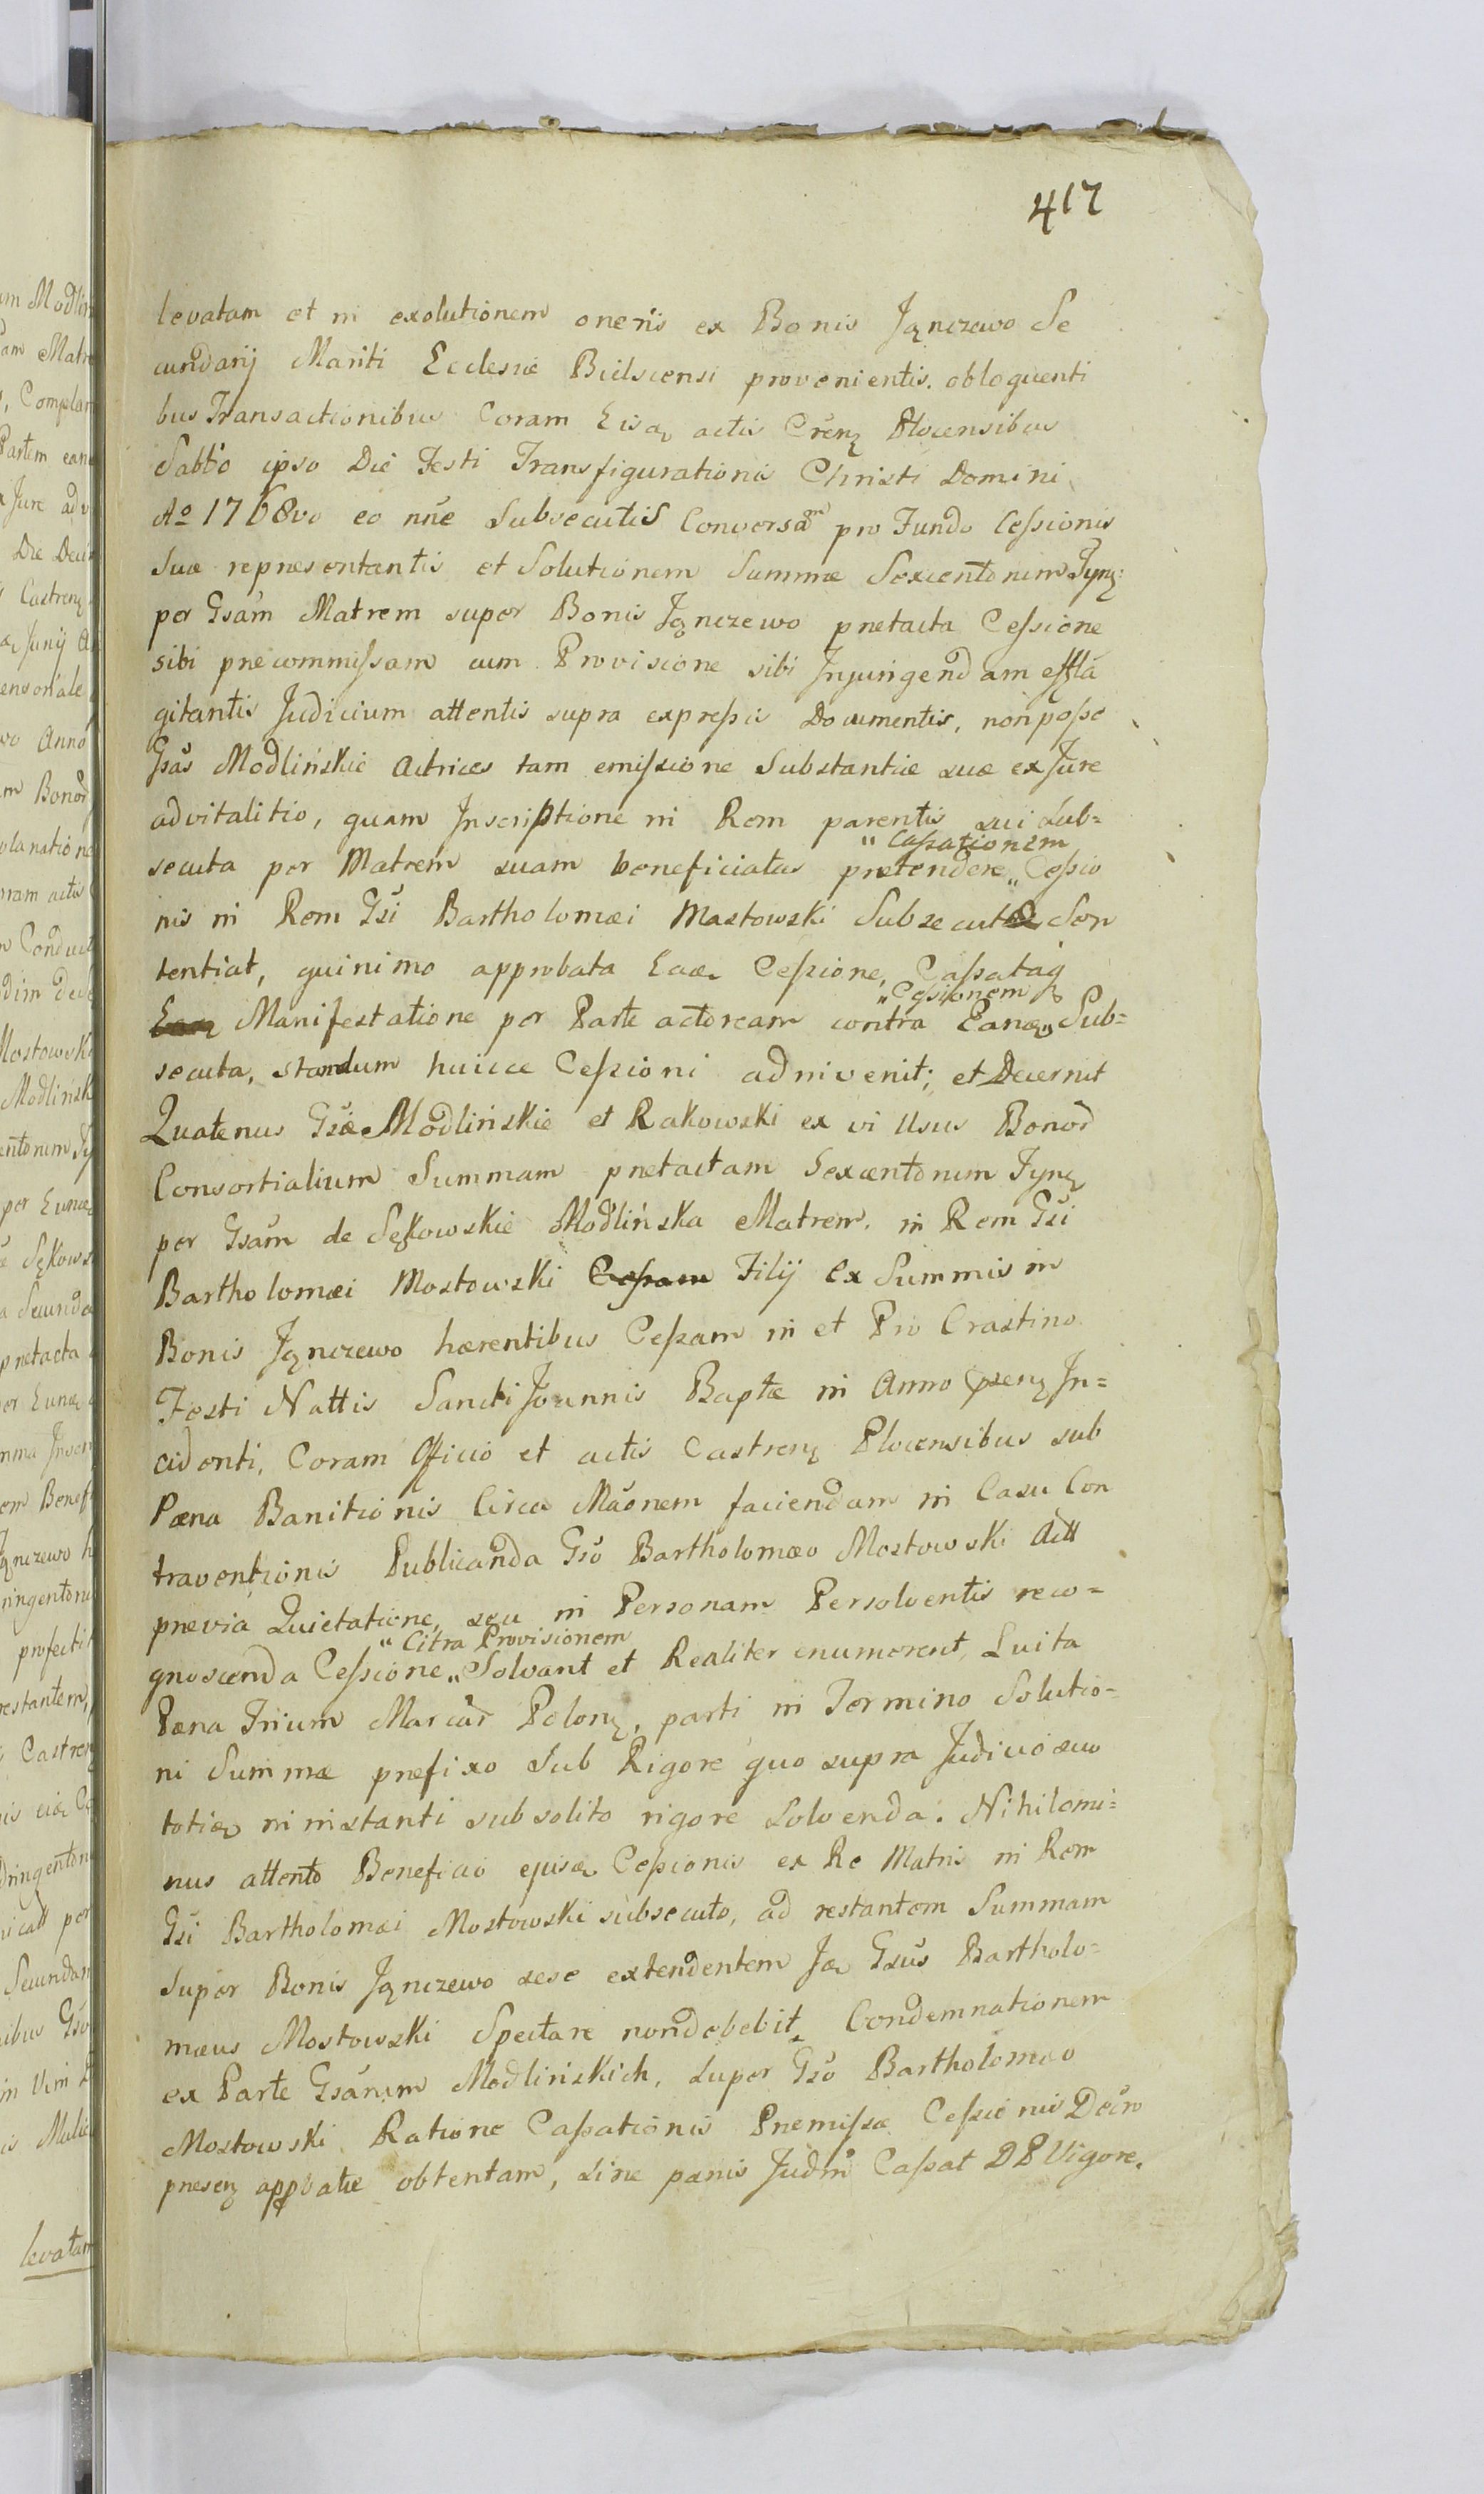 417
levatam et in exolutionem oneris ex Bonis Jączewo Se
cundarij Mariti Ecclesiæ Bielscensi provenientis. obloquenti
bus Transactionibus Coram Eisdē actis Crēn Plocensibus
Sabb̄o ipso Die Festi Transfigurationis Christi Domini
Aº 1768vo eo nn̄e Subsecutis Conversām pro Fundo Cessionis
Suæ repræsentantis et Solutionem Summæ Sexcentorum Tynf:
per Gsām Matrem super Bonis Jączewo prætacta Cessione
sibi præcommissam cum Provisione sibi Injungendam effla
gitantis Judicium attentis supra expressis Documentis, non posse
Gsās Modlińskie Actrices tam emissione Substantiæ suæ ex Jure
advitalitio, quam Inscriptione in Rem parentis sui Sub=
" Cassationem
secuta per Matrem suam beneficiatas prætendere " Cessio
nis in Rem Gsi Bartholomæi Mostowski Subsecutæ Sen
tentiat, quinimo approbata Eadē Cessione, Cassataq̄
" Cessionem
Manifestatione per Parte actoream contra Eandē " Sub=
secuta, standum huicce Cessioni adinvenit; et Decernit
Quatenus Gsæ Modlińskie et Rakowski ex vi Usus Bonor̄
Consortialium Summam prætactam Sexcentorum Tynf
per Gsām de Sękowskie Modlińska Matrem, in Rem Gsi
Bartholomæi Mostowski Cessam Filij ex Summis in
Bonis Jączewo hærentibus Cessam in et Pro Crastino
Festi Nattis Sancti Joannis Baptæ in Anno præsn̄ In=
cidenti, Coram Officio et actis Castren̄ Plocensibus sub
Pæna Banitionis Circa Māonem faciendam in Casu Con
traventionis Publicanda Gsō Bartholomæo Mostowski Actt
prævia Quietatione, seu in Personam Persolventis reco=
" Citra Provisionem
gnoscenda Cessione " Solvant et Realiter enumerent, Luita
Pæna Trium Marcar̄ Polon̄, parti in Termino Solutio=
ni Summæ præfixo Sub Rigore quo supra Judicio suo
toties in instanti sub solito rigore solvenda. Nihilomi=
nus attento Beneficio ejusdē Cessionis ex Re Matris in Rem
Gsi Bartholomæi Mostowski subsecuto, ad restantem Summam
Super Bonis Jączewo sese extendentem Jdē Gsūs Bartholo=
mæus Mostowski Spectare non debebit, Condemnationem
ex Parte Gsārum Modlińskich, super Gsō Bartholomæo
Mostowski Ratione Cassationis Præmissæ Cessionis Decr̄o
præsen̄ appbatæ obtentam, sine pænis Judm̄ Cassat DP Vigore.
levatam